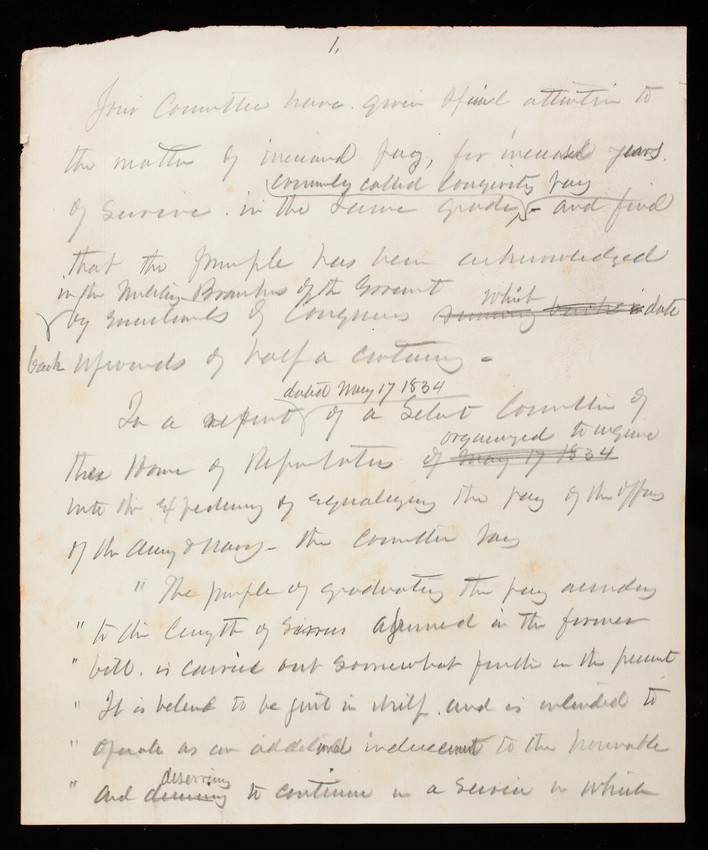 1.
Your Committee have given special attention to
the matter of increased pay, for increased years
commonly called longevity pay
of service in the same grade, - and find
that the principle has been acknowledged
in the Military Branches of the Government
by enactments of Congress which date
back upwards of half a century -
dated May 17 1834
In a report of a Select Committee of
organized to inquire
the House of Representatives of May 17 1834
into the expediency of equalizing the pay of the officers
of the Army & Navy - the Committee says
" The principle of graduating the pay according
" to the length of service assumed in the former
" bill is carried out somewhat further in the present
" It is believed to be just in itself and is intended to
" operate as an additional inducement to the honorable
deserving
" and to continue in a service in which